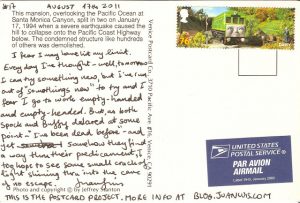 #17 AUGUST 17th 2011
This mansion, overlooking the Pacific Ocean at
Santa Monica Canyon, split in two on January
17, 1994 when a severe earthquake caused the
hill to collapse onto the Pacific Coast Highway
below. The condemned structure like hundreds
of others was demolished.
I fear I may have hit my limit.
Every day I've thought - well, tomorrow
I can try something new, but I'm running
out of "somethings new" to try and I
fear I go to work empty-handed
and empty-headed. But, as both
Spock and Buffy debated at some
point "I've been dead before" - and
yet somehow they find
a way thru their predicament, I
too hope to see some small crack of
light shining thru into the cave
of no escape.
Photo and copyright © by Jeffrey Stanton
THIS IS THE POSTCARD PROJECT. MORE INFO AT BLOG.JUANWS.COM
Venice Postcard Co., 1700 Pacific Ave Venice, CA 90291
UNITED STATES
POSTAL SERVICE
PAR AVION
AIRMAIL